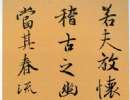 若夫放懷
稽古之幽
當其春流